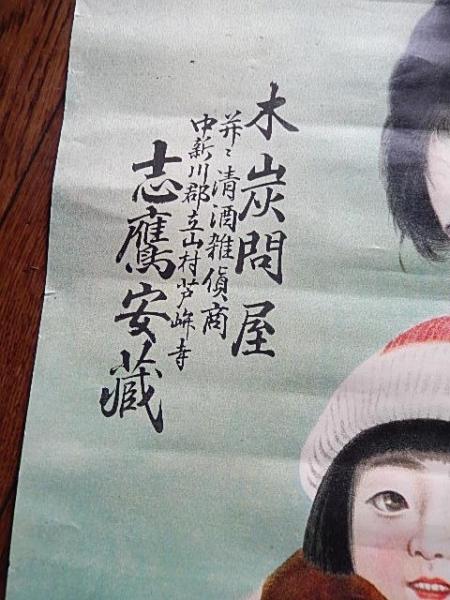 木炭問屋
並ニ清酒雑貨商
中新川郡立山村芦峅寺
志鷹安藏